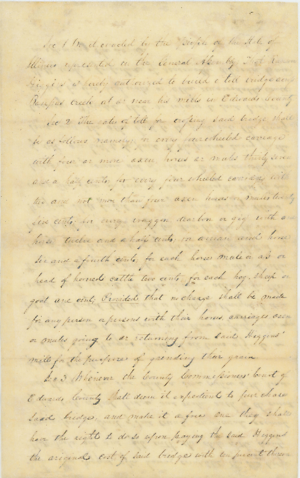 Sec 1 Be it enacted by the People of the State of
Illinois represented in the General Assembly That
Higgins is hereby authorized to build a toll bridge across
Creek at or near his mills in Edwards County
Sec 2 The rates of toll for crossing said bridge shall
be as follows for every four wheeled carriage
with five or more asses, horses or mules thirty seven
and a half cents, for every four wheeled carriage with
not more than four asses horses or mules twenty
five cents, for every waggon dearborn or gig with one
horse twelve and a half cents, for a man and horse
six and a fourth cents for each horse mule or ass or
head of horned cattle two cents, for each hog, sheep or
goat one cent, Provided that no charge shall be made
for any person or persons with their horses carriages oxen
or mules going to or returning from said Higgins'
mill for the purposes of grinding their grain
Sec 3 Whenever the County Commissioners Court of
Edwards County shall deem it expedient to purchase
said bridge, and make it a free one they shall
have the right to do so upon paying the said Higgins
the original cost of said bridge with